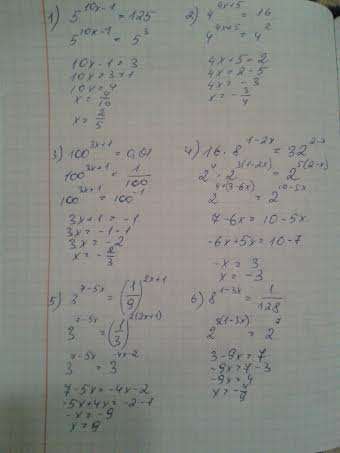 1) 5^(10x-1) = 125
5^(10x-1) = 5^3
10x-1 = 3
10x = 3+1
10x = 4
x = 4/10
x = 2/5
2) 4^(4x+5) = 16
4^(4x+5) = 4^2
4x+5 = 2
4x = 2-5
4x = -3
x = -3/4
3) 100^(3x+1) = 0,01
100^(3x+1) = 1/100
100^(3x+1) = 100^(-1)
3x+1 = -1
3x = -1-1
3x = -2
x = -2/3
4) 16 · 8^(1-2x) = 32^(2-x)
2^4 · 2^(3(1-2x)) = 2^(5(2-x))
2^(4+(3-6x)) = 2^(10-5x)
7-6x = 10-5x
-6x+5x = 10-7
-x = 3
x = -3
5) 3^(7-5x) = (1/9)^(2x+1)
3^(7-5x) = (1/3)^(2(2x+1))
3^(7-5x) = 3^(-4x-2)
7-5x = -4x-2
-5x+4x = -2-7
-x = -9
x = 9
6) 8^(1-3x) = 1/128
2^(3(1-3x)) = 2^7
3-9x = 7
-9x = 7-3
-9x = 4
x = -4/9